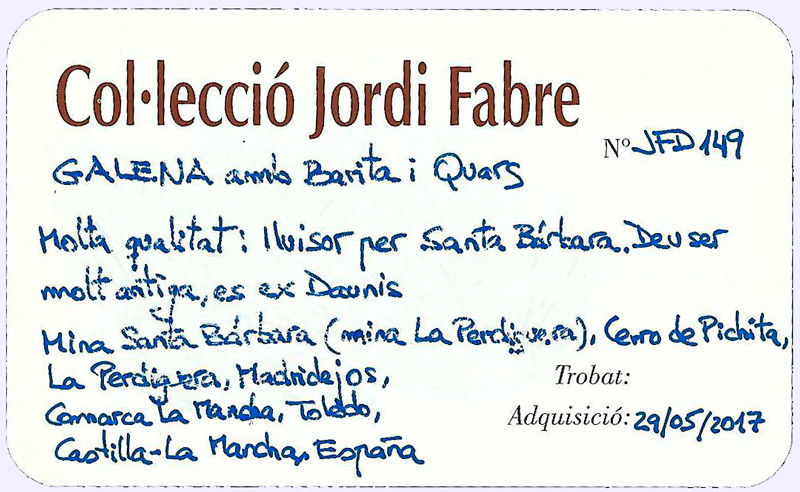 Col·lecció Jordi Fabre
Nº JFD149
GALENA amb Barita i Quars
Molta qualitat i lluisor per Santa Bárbara. Deu ser
molt antiga, es ex Daunis
Mina Santa Bárbara (mina La Perdiguera), Cerro de Pichita,
La Perdiguera, Madridejos,
Comarca La Mancha, Toledo,
Castilla-La Mancha, España
Trobat:
Adquisició: 29/05/2017